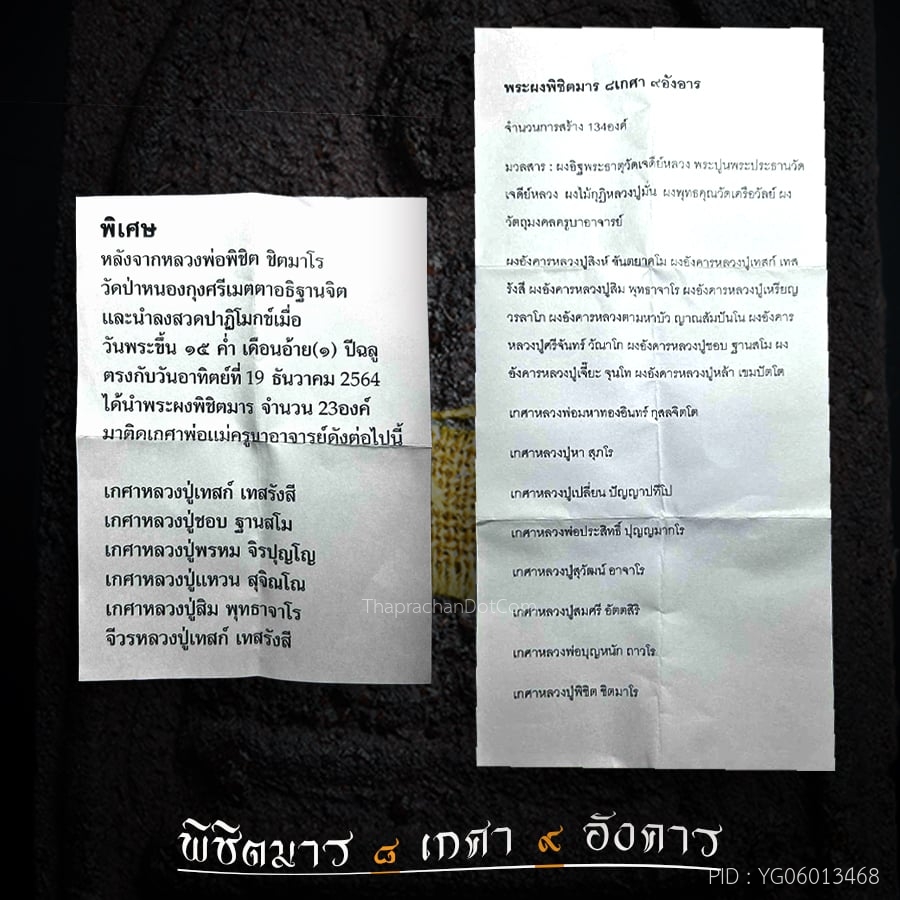 พิเศษ
หลังจากหลวงพ่อพิชิต ชิตมาโร
วัดป่าหนองกุงศรีเมตตาอธิฐานจิต
และนำลงสวดปาฏิโมกข์เมื่อ
วันพระขึ้น ๑๕ ค่ำ เดือนอ้าย(๑) ปีฉลู
ตรงกับวันอาทิตย์ที่ 19 ธันวาคม 2564
ได้นำพระผงพิชิตมาร จำนวน 23องค์
มาติดเกศาพ่อแม่ครูบาอาจารย์ดังต่อไปนี้
เกศาหลวงปู่เทสก์ เทสรังสี
เกศาหลวงปู่ชอบ ฐานสโม
เกศาหลวงปู่พรหม จิรปุญโญ
เกศาหลวงปู่แหวน สุจิณโณ
เกศาหลวงปู่สิม พุทธาจาโร
จีวรหลวงปู่เทสก์ เทสรังสี
พระผงพิชิตมาร ๘เกศา ๙อังอาร
จำนวนการสร้าง 134องค์
มวลสาร : ผงอิฐพระธาตุวัดเจดีย์หลวง พระปูนพระประธานวัด
เจดีย์หลวง ผงไม้กุฏิหลวงปู่มั่น ผงพุทธคุณวัดเครือวัลย์ ผง
วัตถุมงคลครูบาอาจารย์
ผงอังคารหลวงปู่สิงห์ ขันตยาคโม ผงอังคารหลวงปู่เทสก์ เทส
รังสี ผงอังคารหลวงปู่สิม พุทธาจาโร ผงอังคารหลวงปู่เหรียญ
วรลาโภ ผงอังคารหลวงตามหาบัว ญาณสัมปันโน ผงอังคาร
หลวงปู่ศรีจันทร์ วัณาโภ ผงอังคารหลวงปู่ชอบ ฐานสโม ผง
อังคารหลวงปู่เจี๊ยะ จุนโท ผงอังคารหลวงปู่หล้า เขมปัตโต
เกศาหลวงพ่อมหาทองอินทร์ กุสลจิตโต
เกศาหลวงปู่หา สุภโร
เกศาหลวงปู่เปลี่ยน ปัญญาปทีโป
เกศาหลวงพ่อประสิทธิ์ ปุญญมากโร
เกศาหลวงปู่สุวัฒน์ อาจาโร
เกศาหลวงปู่สมศรี อัตตสิริ
เกศาหลวงพ่อบุญหนัก ถาวโร
เกศาหลวงปู่พิชิต ชิตมาโร
ThaprachanDotCom
พิชิตมาร ๘ เกศา ๙ อังคาร
PID : YG06013468